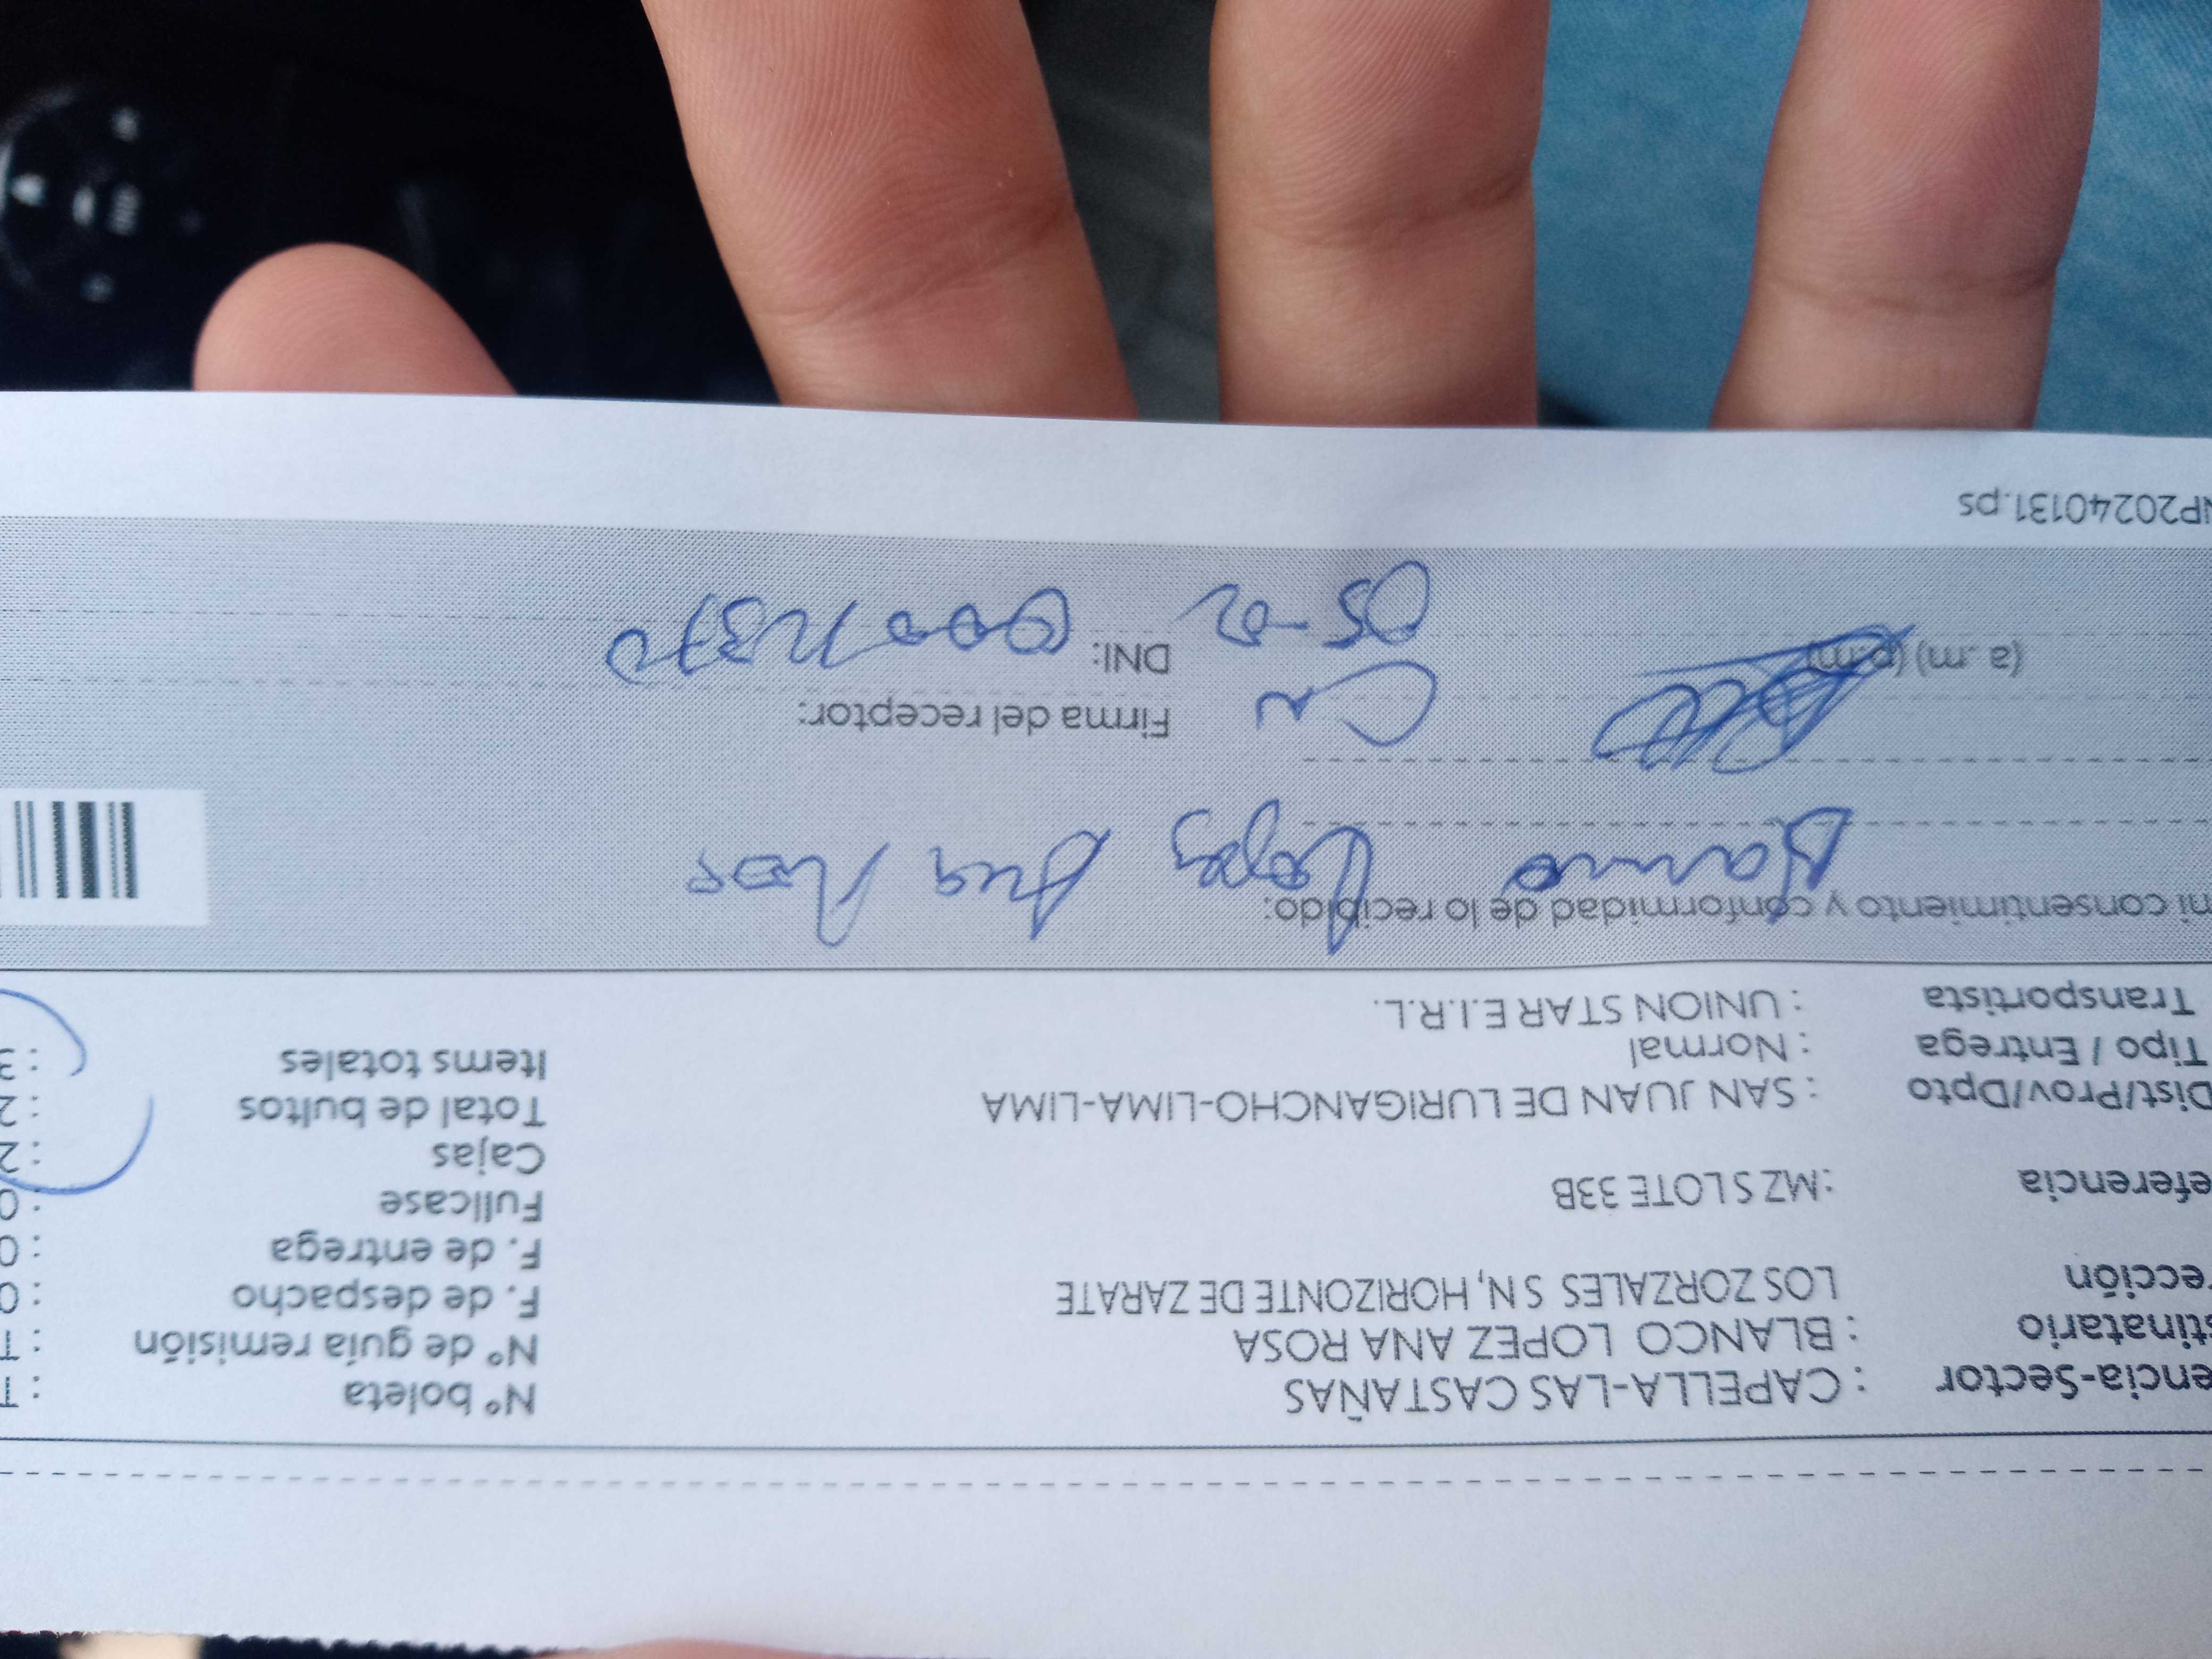 encia-Sector : CAPELLA-LAS CASTAÑAS Nº boleta : T
stinatario : BLANCO LOPEZ ANA ROSA Nº de guía remisión : T
rección LOS ZORZALES SN, HORIZONTE DE ZARATE F. de despacho : 0
F. de entrega : 0
eferencia : MZ S LOTE 33B Fullcase : 0
Cajas : 2
Dist/Prov/Dpto : SAN JUAN DE LURIGANCHO-LIMA-LIMA Total de bultos : 2
Tipo / Entrega : Normal Items totales : 3
Transportista : UNION STAR E.I.R.L.
mi consentimiento y conformidad de lo recibido:
Lopez Ana Rosa
Firma del receptor:
(a.m) (p.m) 05-02 DNI:
NP20240131.ps